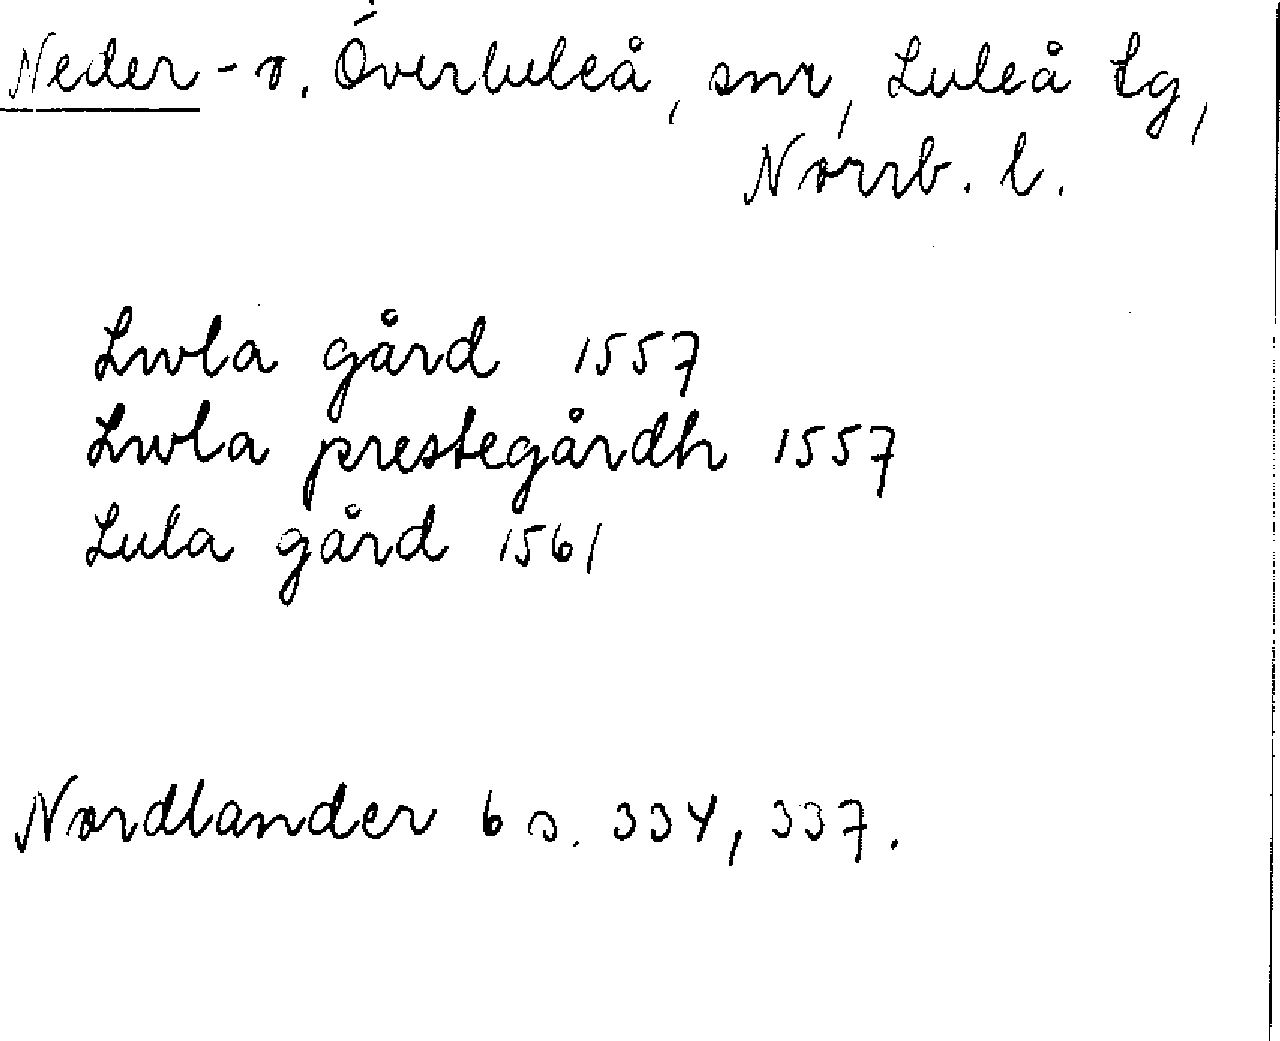 Neder- o. Överluleå, snr, Luleå tg,
Norrb. l.
Lwla gård 1557
Lwla prestegårdh 1557
Lula gård 1561
Nordlander 6 s. 334, 337.